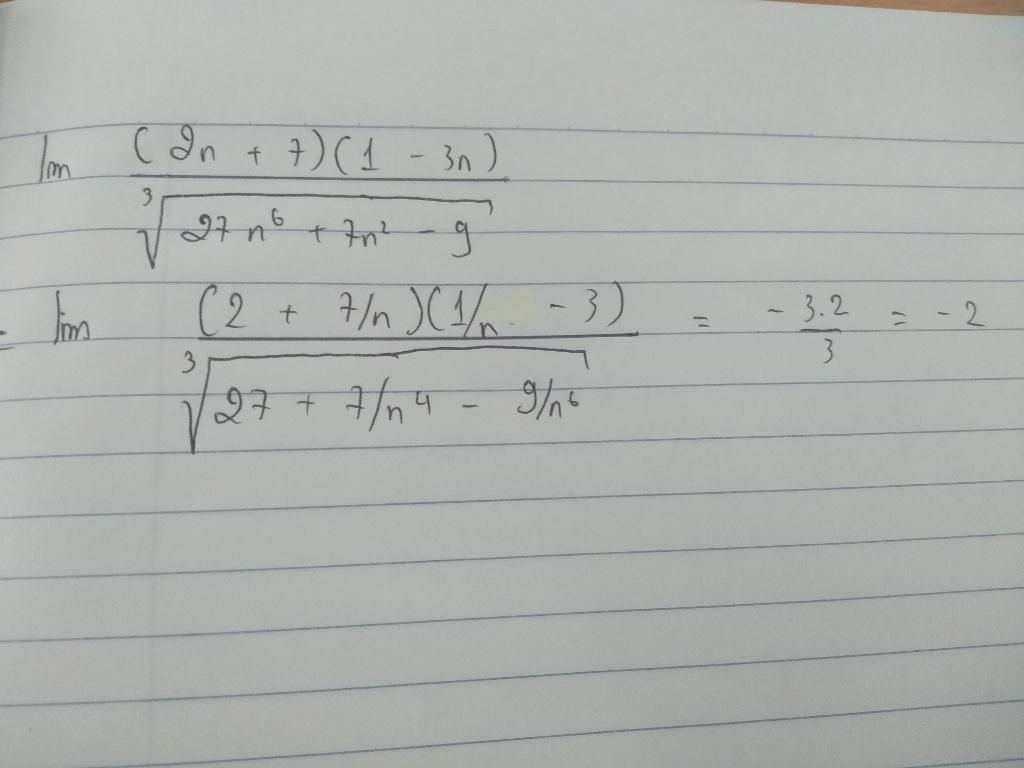 lim (2n + 7)(1 - 3n) / ∛(27n⁶ + 7n² - 9)
= lim (2 + 7/n)(1/n - 3) / ∛(27 + 7/n⁴ - 9/n⁶) = - 3.2/3 = - 2